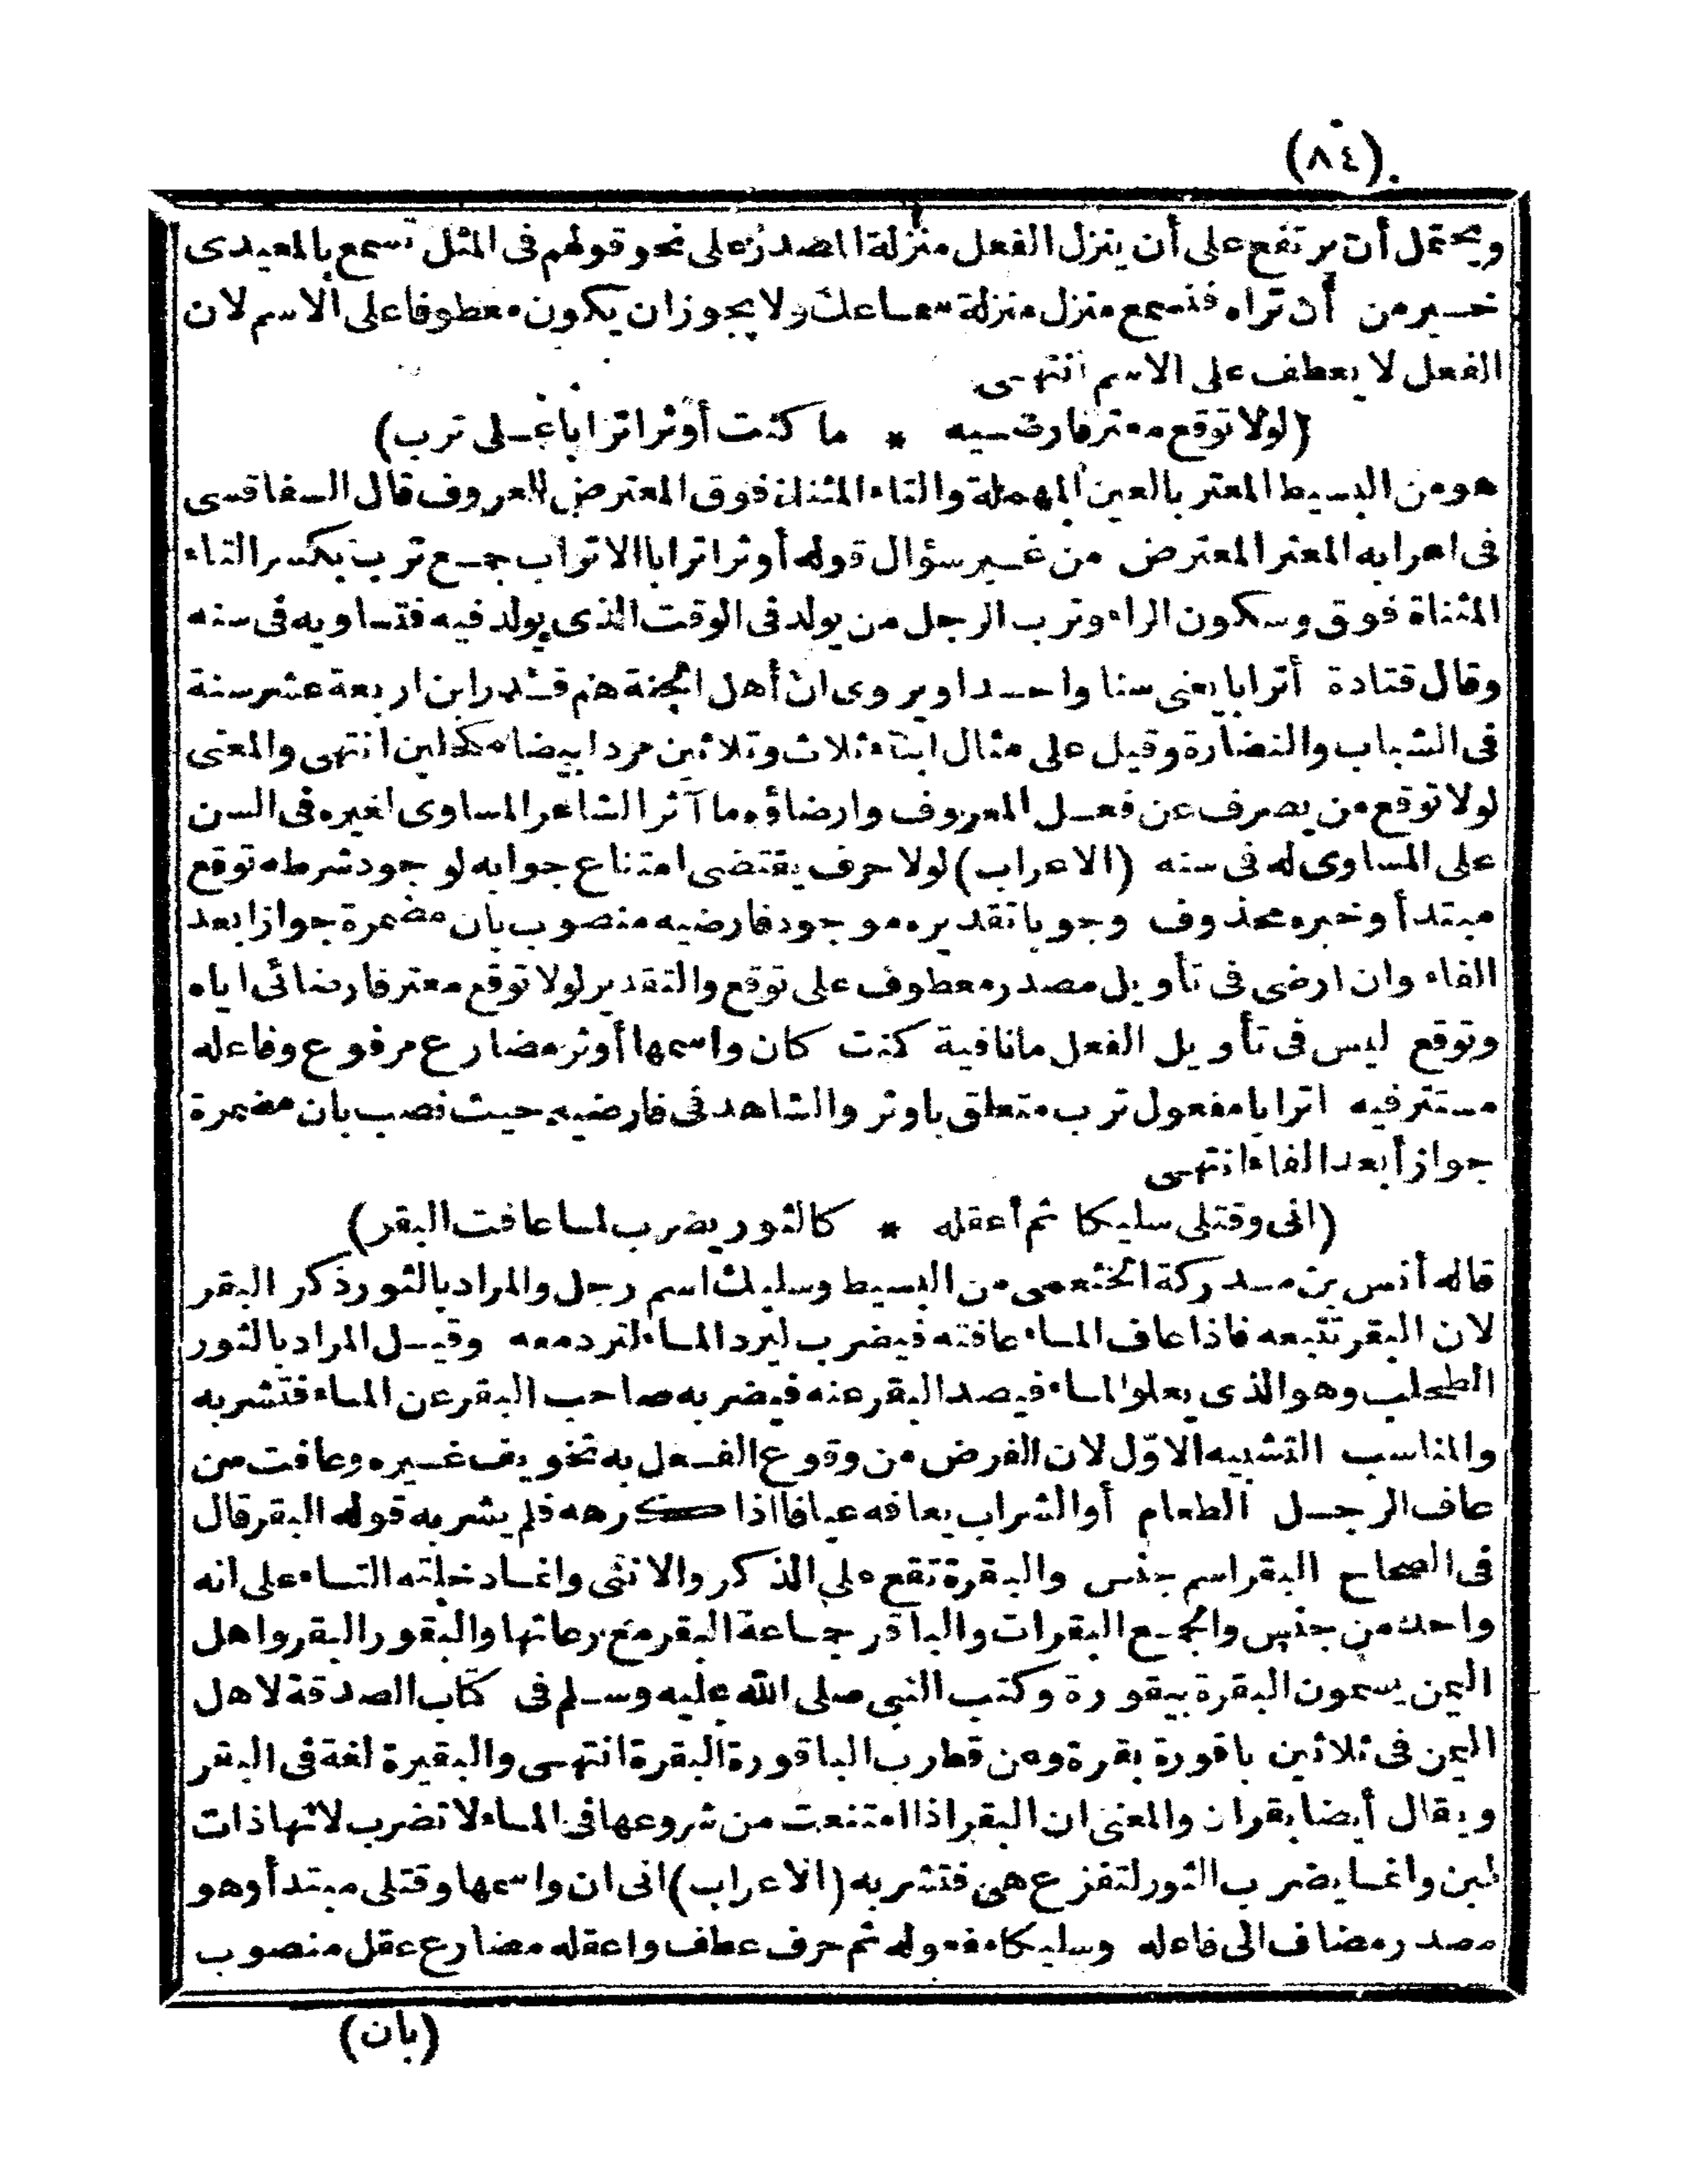 (٨٤)
ويحتمل أن يرتفع على أن ينزل الفعل منزلة المصدر على نحو قولهم فى المثل تسمع بالمعيدى
خير من أن تراه فتسمع منزل منزلة سماعك ولا يجوز ان يكون معطوفا على الاسم لان
الفعل لا يعطف على الاسم انتهى
(لولا توقع معتر فارضيه * ما كنت أوثر اترابا على ترب)
هو من البسيط المعتر بالعين المهملة والتاء المثناة فوق المعترض للعروف قال السفاقسى
فى اعرابه المعتر المعترض من غير سؤال قوله أوثر اترابا الاتراب جمع ترب بكسر التاء
المثناة فوق وسكون الراء وترب الرجل من يولد فى الوقت الذى يولد فيه فتساويه فى سنه
وقال قتادة أترابا يعنى سنا واحدا ويروى ان أهل الجنة هم قدر ابن اربعة عشر سنة
فى الشباب والنضارة وقيل على مثال ابناء ثلاث وثلاثين مردا بيضا مكحلين انتهى والمعنى
لولا توقع من يصرف عن فعل المعروف وارضاؤه ما آثر الشاعر المساوى لغيره فى السن
على المساوى له فى سنه (الاعراب) لولا حرف يقتضى امتناع جوابه لوجود شرطه توقع
مبتدأ وخبره محذوف وجوبا تقديره موجود فارضيه منصوب بان مضمرة جوازا بعد
الفاء وان ارضى فى تأويل مصدر معطوف على توقع والتقدير لولا توقع معتر فارضائى اياه
وتوقع ليس فى تأويل الفعل ما نافية كنت كان واسمها أوثر مضارع مرفوع وفاعله
مستتر فيه اترابا مفعول ترب متعلق باوثر والشاهد فى فارضيه حيث نصب بان مضمرة
جوازاً بعد الفاء انتهى
(انى وقتلى سليكا ثم أعقله * كالثور يضرب لما عافت البقر)
قاله أنس بن مدركة الخثعمى من البسيط وسليك اسم رجل والمراد بالثور ذكر البقر
لان البقر تتبعه فاذا عاف الماء عافته فيضرب ليرد الماء لترد معه وقيل المراد بالثور
الطحلب وهو الذى يعلو الماء فيصد البقر عنه فيضربه صاحب البقر عن الماء فتشربه
والمناسب التشبيه الاوّل لان الغرض من وقوع الفعل به تخويف غيره وعافت من
عاف الرجل الطعام أو الشراب يعافه عيافا اذا كرهه فلم يشربه قوله البقر قال
فى الصحاح البقر اسم جنس والبقرة تقع على الذكر والانثى وانما دخلته التاء على انه
واحد من جنس والجمع البقرات والباقر جماعة البقر مع رعاتها والبقور البقر واهل
اليمن يسمون البقرة بيقورة وكتب النبى صلى الله عليه وسلم فى كتاب الصدقة لاهل
اليمن فى ثلاثين باقورة بقرة وعن قطرب الباقورة البقرة انتهى والبقيرة لغة فى البقر
ويقال أيضا بقران والمعنى ان البقر اذا امتنعت من شروعها فى الماء لا تضرب لانها ذات
لبن وانما يضرب الثور لتفزع هى فتشربه (الاعراب) انى ان واسمها وقتلى مبتدأ وهو
مصدر مضاف الى فاعله وسليكا مفعوله ثم حرف عطف واعقله مضارع عقل منصوب
(بان)